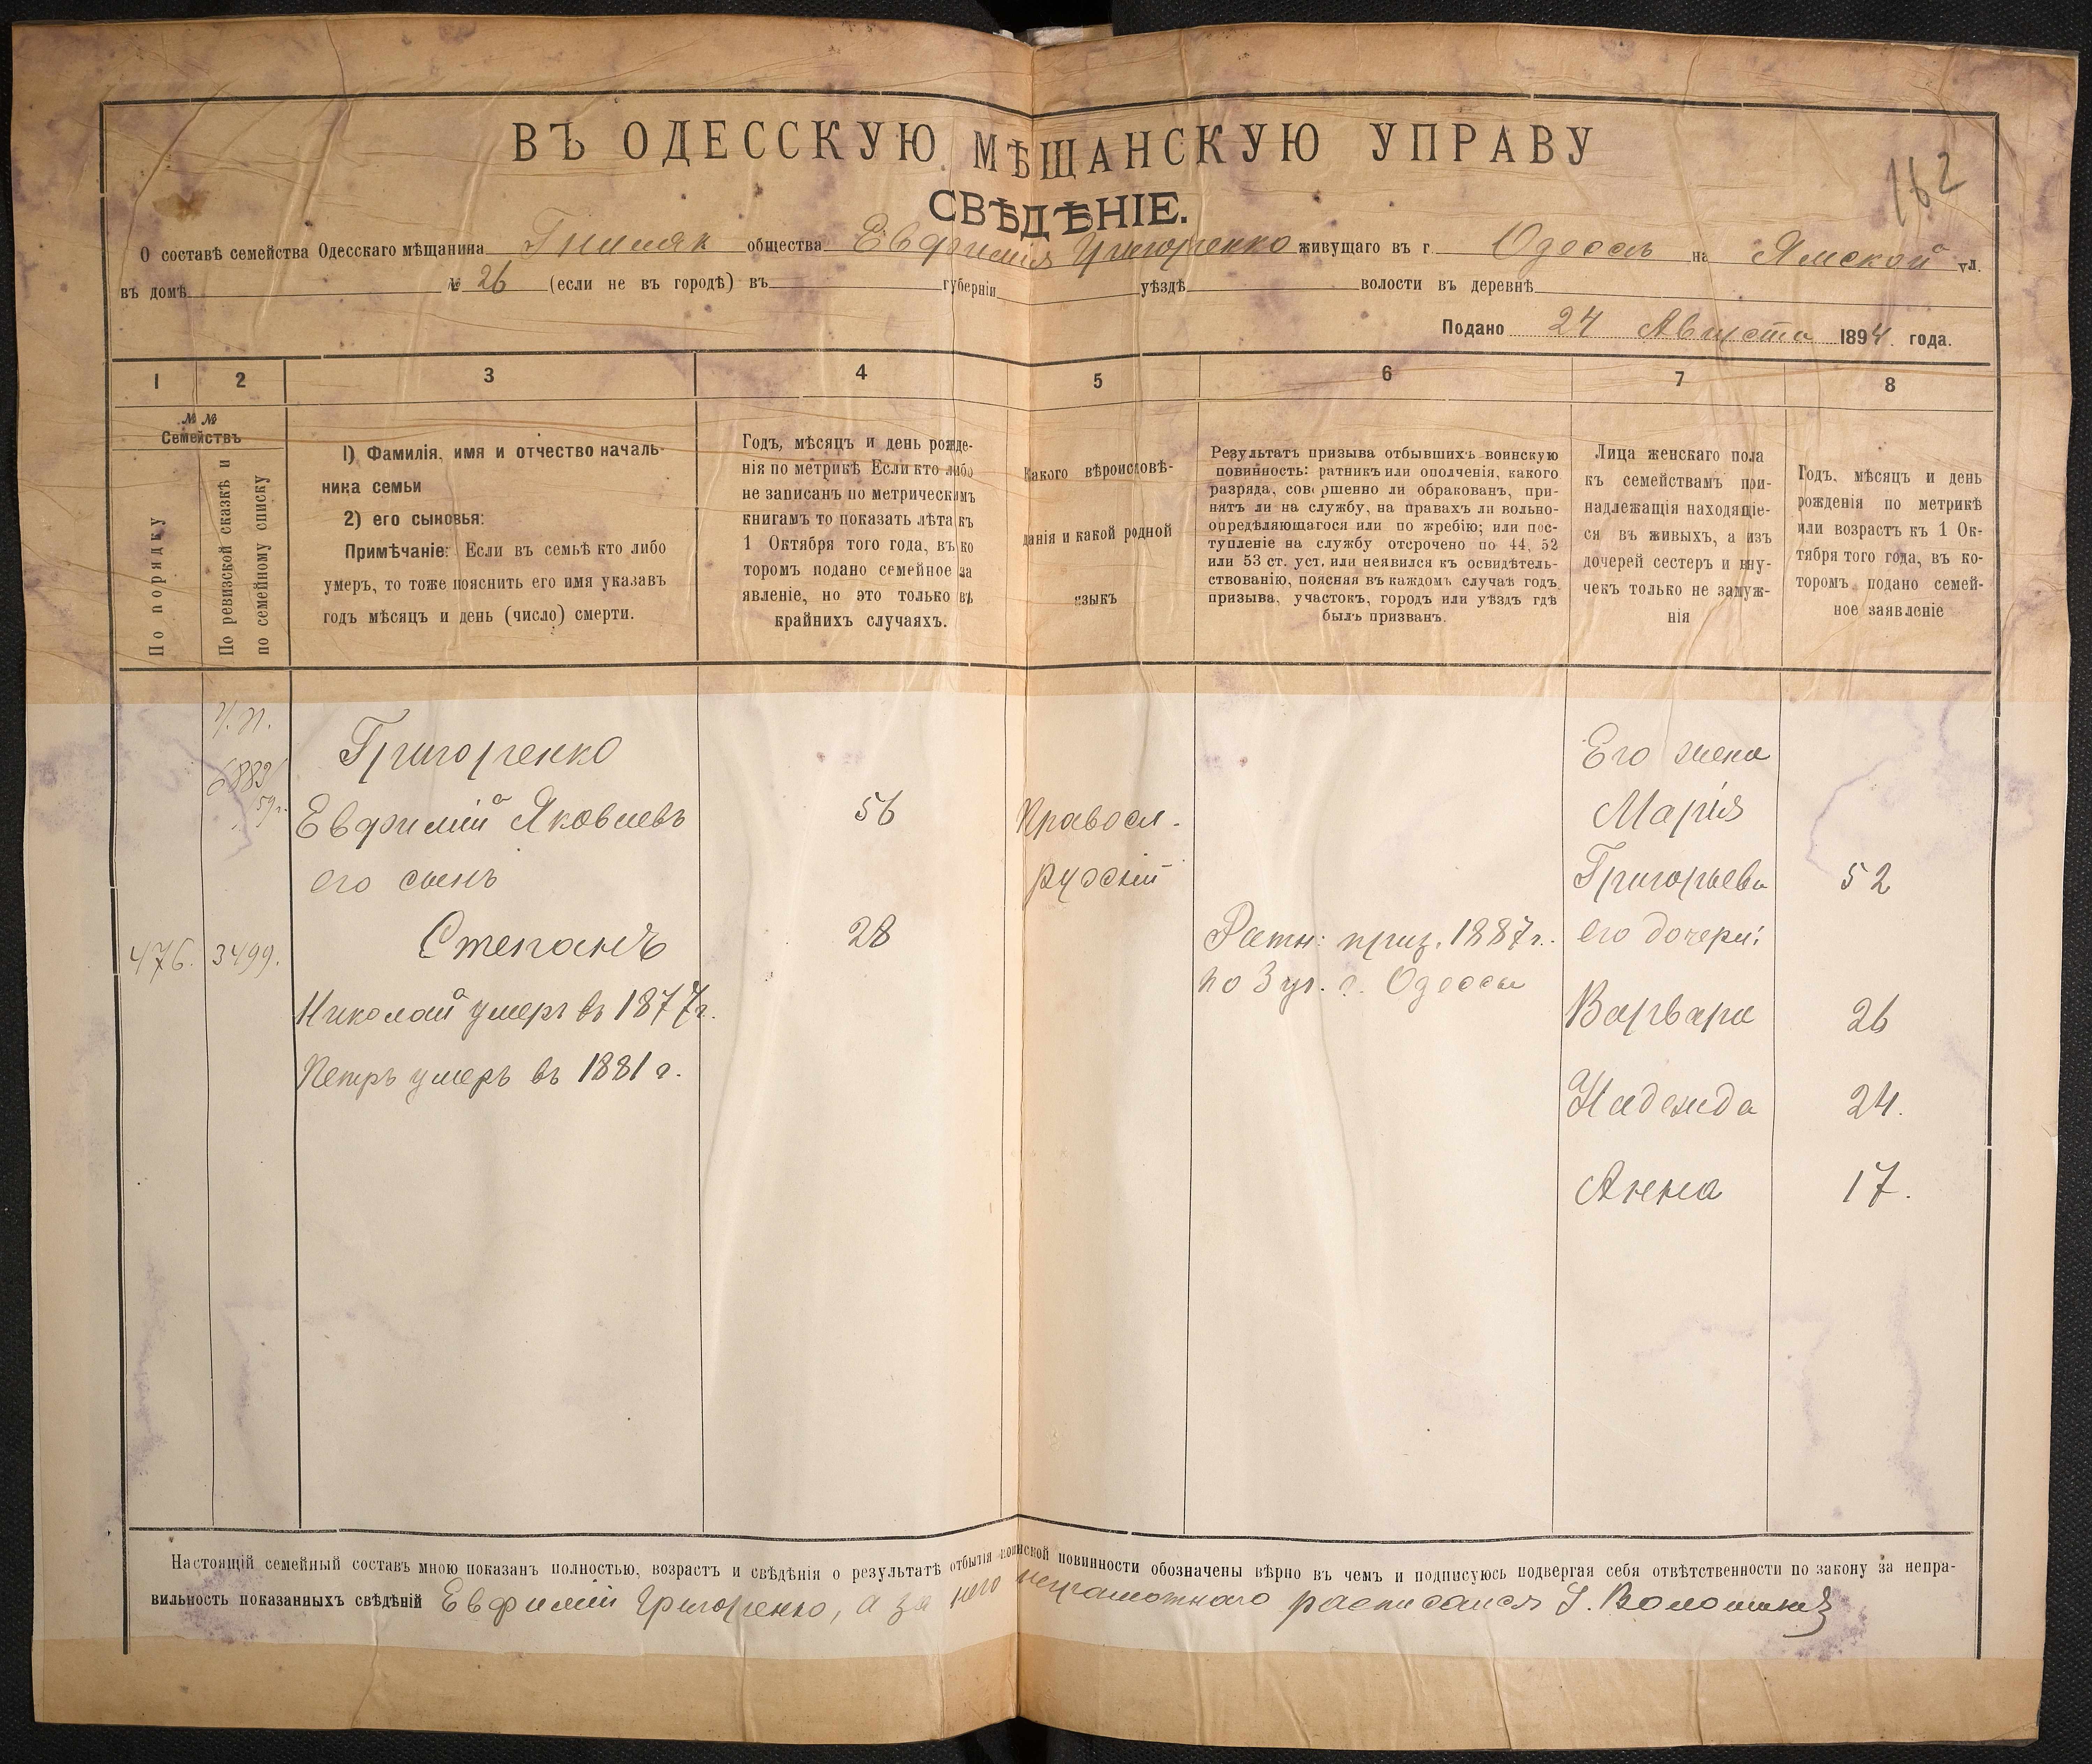 162
ВЪ ОДЕССКУЮ МѢЩАНСКУЮ УПРАВУ
СВѢДѢНІЕ.
О составѣ семейства Одесскаго мѣщанина общества Евфимія Григоренко живущаго въ г. Одессѣ на Ямской ул.
въ домѣ № 26 (если не въ городѣ) въ губерніи уѣздѣ волости въ деревнѣ
Подано 24 Августа 1894 года.
1 2 3 4 5 6 7 8
№ №
Семействъ
По порядку
По ревизской сказкѣ и
по семейному списку
1) Фамилія, имя и отчество началь-
ника семьи
2) его сыновья:
Примѣчаніе: Если въ семьѣ кто либо
умеръ, то тоже пояснить его имя указавъ
годъ мѣсяцъ и день (число) смерти.
Годъ, мѣсяцъ и день рожде-
нія по метрикѣ Если кто либо
не записанъ по метрическимъ
книгамъ то показать лѣта къ
1 Октября того года, въ ко
торомъ подано семейное за
явленіе, но это только въ
крайнихъ случаяхъ.
Какого вѣроисповѣ-
данія и какой родной
языкъ
Результатъ призыва отбывшихъ воинскую
повинность: ратникъ или ополченія, какого
разряда, совершенно ли обракованъ, при-
нятъ ли на службу, на правахъ ли вольно-
опредѣляющагося или по жребію; или пос-
тупленіе на службу отсрочено по 44, 52
или 53 ст. уст. или неявился къ освидѣтель-
ствованію, поясняя въ каждомъ случаѣ годъ
призыва, участокъ, городъ или уѣздъ гдѣ
былъ призванъ.
Лица женскаго пола
къ семействамъ при-
надлежащія находящіе-
ся въ живыхъ, а изъ
дочерей сестеръ и вну-
чекъ только не замуж-
нія
Годъ, мѣсяцъ и день
рожденія по метрикѣ
или возрастъ къ 1 Ок-
тября того года, въ ко-
торомъ подано семей-
ное заявленіе
6882
59 г.
Григоренко
Евфимій Яковлевъ 56
его сынъ
476. 3499. Степанъ 28
Николай умеръ въ 1877 г.
Петръ умеръ въ 1881 г.
Правосл.
русскій
Ратн: приз. 1887 г.
по 3 уч. г. Одессы
Его жена
Марія
Григорьева 52
его дочери:
Варвара 26
Надежда 24.
Анна 17.
Настоящій семейный составъ мною показанъ полностью, возрастъ и свѣдѣнія о результатѣ отбытія воинской повинности обозначены вѣрно въ чемъ и подписуюсь подвергая себя отвѣтственности по закону за непра-
вильность показанныхъ свѣдѣній Евфимій Григоренко, а за него неграмотнаго расписался